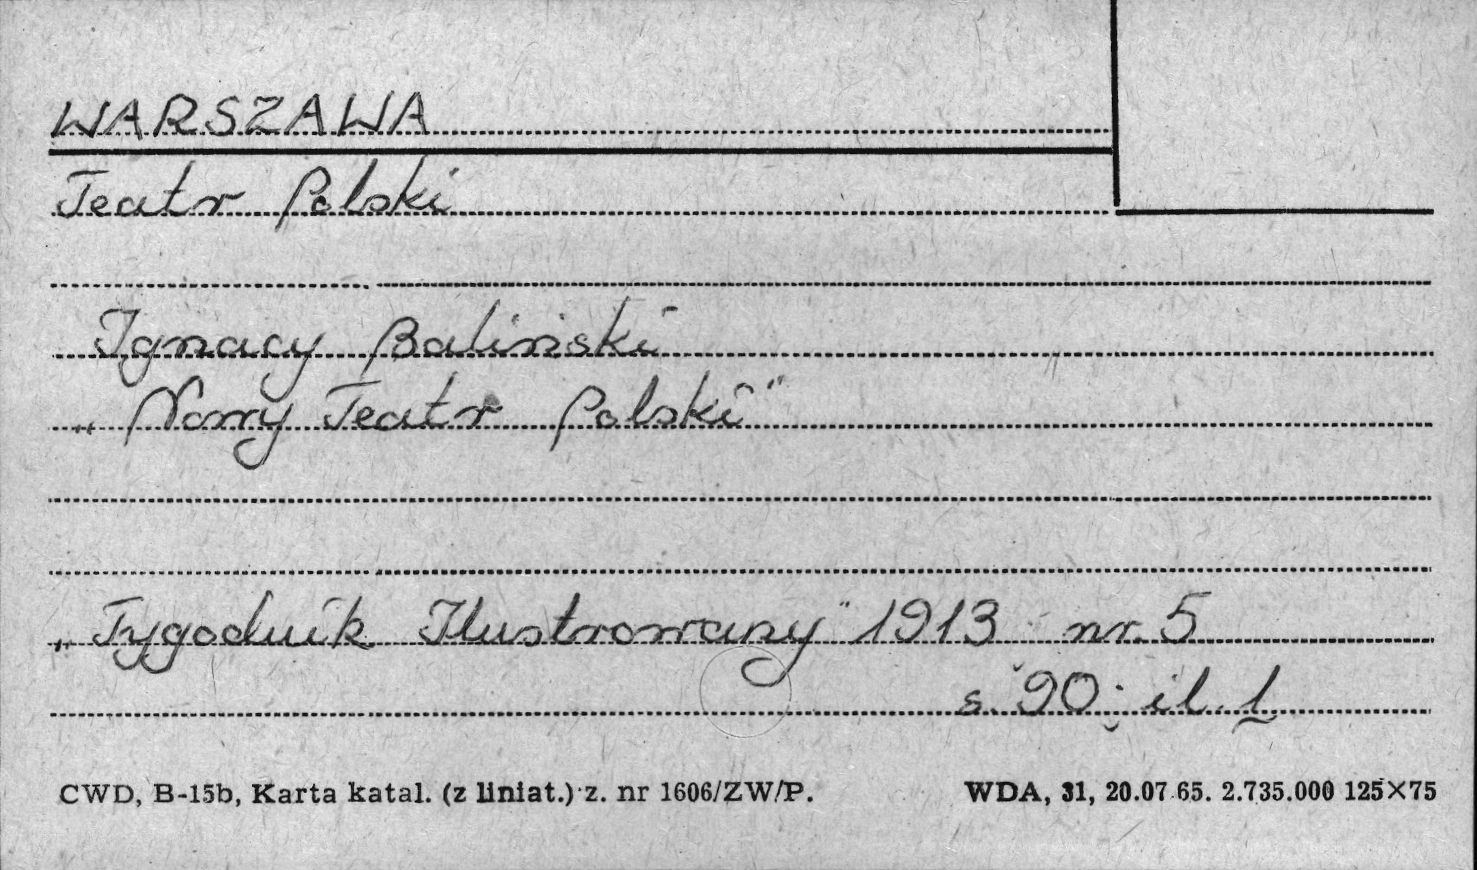 WARSZAWA
Teatr Polski
Ignacy Baliński
„Nowy Teatr Polski"
„Tygodnik Ilustrowany" 1913 nr. 5
s. 90; il. 1
CWD, B-15b, Karta katal. (z liniat.) z. nr 1606/ZW/P. WDA, 31, 20.07.65. 2.735.000 125×75